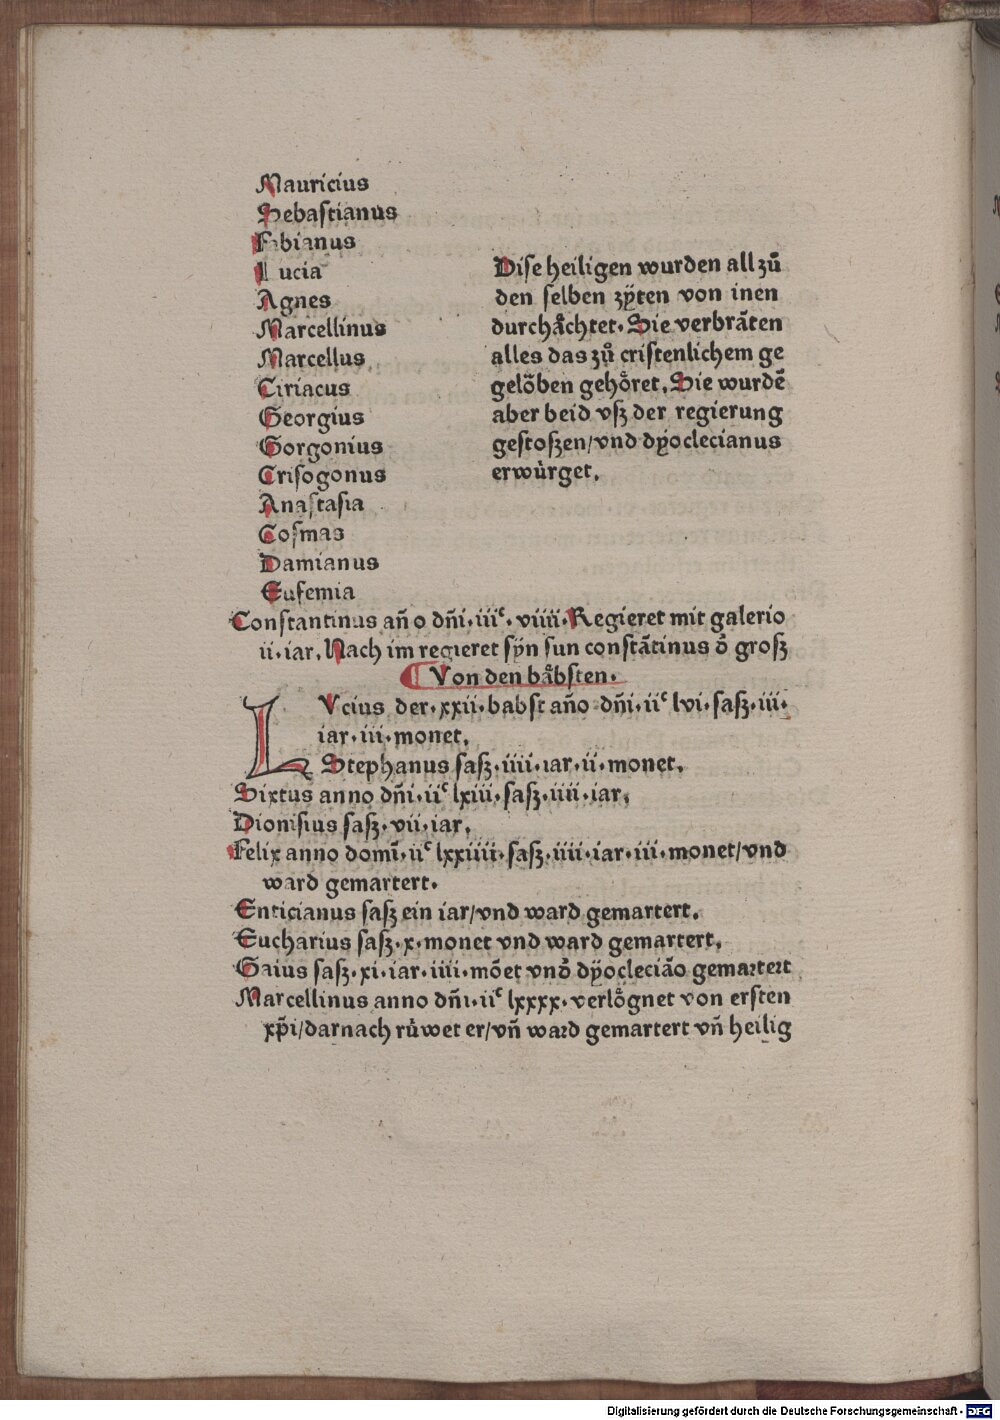 Mauricius
Sebastianus
Fabianus
Lucia
Agnes
Marcellinus
Marcellus
Ciriacus
Georgius
Gorgonius
Crisogonus
Anastasia
Cosmas
Damianus
Eufemia
Dise heiligen wurden all zů
den selben zÿten von inen
durchåchtet. Sie verbrãten
alles das zů cristenlichem ge
gelöben gehöret. Sie wurdẽ
aber beid vsz der regierung
gestoszen/vnd dÿoclecianus
erwürget.
Constantinus añ o dñi.iiiᶜ. viiii. Regieret mit galerio
ii.iar. Nach im regieret sÿn sun constãtinus ð grosz
Von den båbsten.
LVcius der.xxii.babst año dñi.iiᶜ lvi.sasz.iii.
iar.iii.monet.
Stephanus sasz.iiii.iar.ii.monet.
Sixtus anno dñi.iiᶜ lxiii.sasz.iiii.iar.
Dionisius sasz.vii.iar.
Felix anno domĩ.iiᶜ lxxiiii.sasz.iiii.iar.iii.monet/vnd
ward gemartert.
Enticianus sasz ein iar/vnd ward gemartert.
Eucharius sasz.x.monet vnd ward gemartert.
Gaius sasz.xi.iar.iiii.mõet vnð dÿoclecião gemartert
Marcellinus anno dñi.iiᶜ lxxxx.verlögnet von ersten
xp̃i/darnach růwet er/vñ ward gemartert vñ heilig
Digitalisierung gefördert durch die Deutsche Forschungsgemeinschaft - DFG